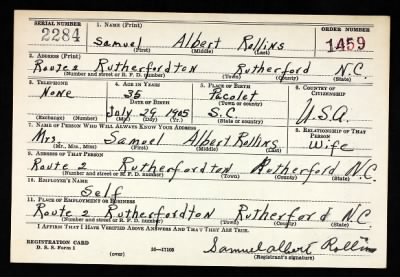 SERIAL NUMBER 1. NAME (Print) ORDER NUMBER
2284 Samuel Albert Rollins 1459
(First) (Middle) (Last)
2. ADDRESS (Print)
Route 2 Rutherfordton Rutherford N.C.
(Number and street or R. F. D. number) (Town) (County) (State)
3. TELEPHONE 4. AGE IN YEARS 5. PLACE OF BIRTH 6. COUNTRY OF CITIZENSHIP
None 36 Pacolet
DATE OF BIRTH (Town or county)
July 29 1905 S.C. U.S.A.
(Exchange) (Number) (Mo.) (Day) (Yr.) (State or country)
7. NAME OF PERSON WHO WILL ALWAYS KNOW YOUR ADDRESS 8. RELATIONSHIP OF THAT PERSON
Mrs. Samuel Albert Rollins Wife
(Mr., Mrs., Miss) (First) (Middle) (Last)
9. ADDRESS OF THAT PERSON
Route 2 Rutherfordton Rutherford N.C.
(Number and street or R. F. D. number) (Town) (County) (State)
10. EMPLOYER'S NAME
Self
11. PLACE OF EMPLOYMENT OR BUSINESS
Route 2 Rutherfordton Rutherford N.C.
(Number and street or R. F. D. number) (Town) (County) (State)
I AFFIRM THAT I HAVE VERIFIED ABOVE ANSWERS AND THAT THEY ARE TRUE.
REGISTRATION CARD
D. S. S. Form 1 16—17105 Samuel albert Rollins
(Registrant's signature)